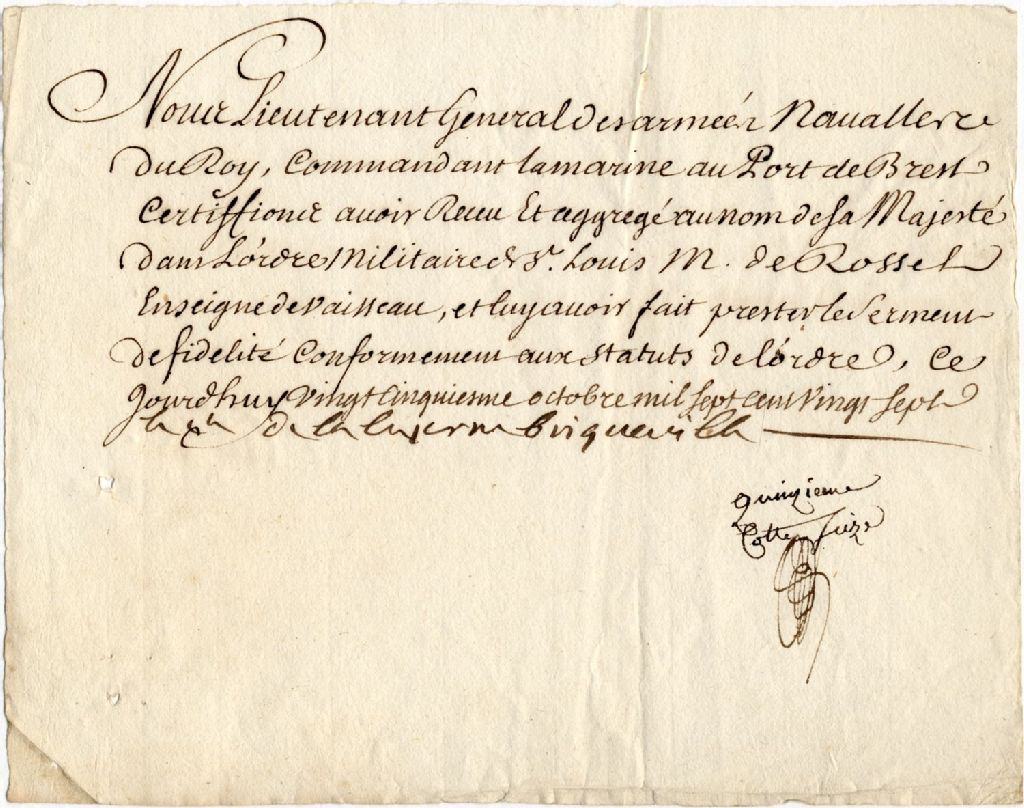 Nous Lieutenant General des armées Navalles
du Roy, Commandant la marine au Port de Brest
Certiffions avoir Receu Et aggregé au nom de sa Majesté
dans L'órdre Militaire de St. Louis M. de Rossel
Enseigne de vaisseau, et luy avoir fait prester le serment
de fidelité Conformement aux statuts de l'órdre, Ce
Jourdhuy vingt cinquiesme octobre mil sept cent vingt sept
de la luzerne briqueville
quinzieme
Cotte